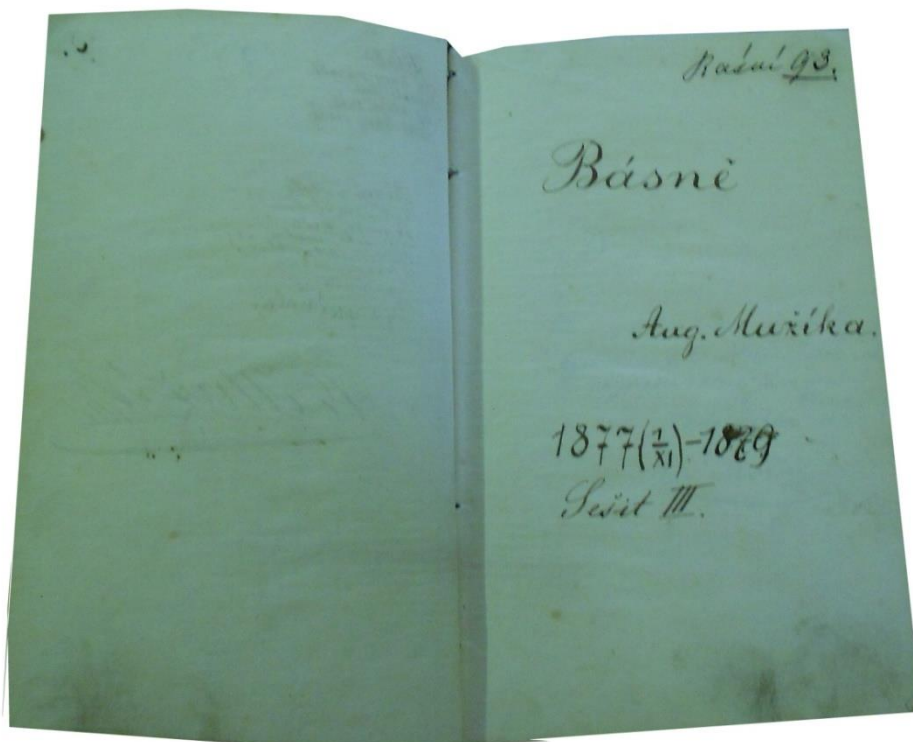 93.
Básně
Aug. Mužíka.
1877(1/XI)-1879
Sešit III.